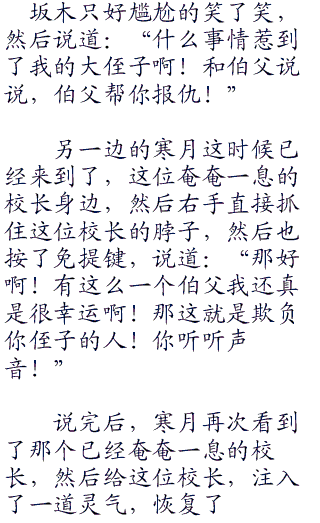 坂木只好尴尬的笑了笑，
然后说道：“什么事情惹到
了我的大侄子啊！和伯父说
说，伯父帮你报仇！”
另一边的寒月这时候已
经来到了，这位奄奄一息的
校长身边，然后右手直接抓
住这位校长的脖子，然后也
按了免提键，说道：“那好
啊！有这么一个伯父我还真
是很幸运啊！那这就是欺负
你侄子的人！你听听声
音！”
说完后，寒月再次看到
了那个已经奄奄一息的校
长，然后给这位校长，注入
了一道灵气，恢复了